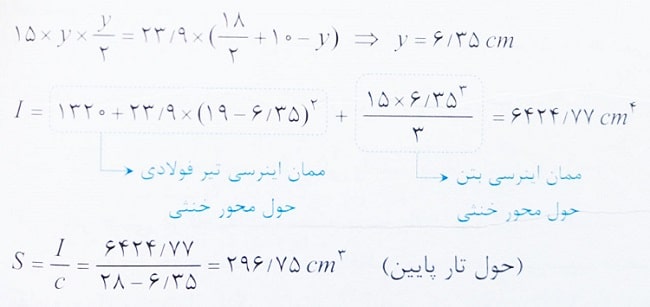 ۱۵ × y × y/۲ = ۲۳/۹ × (۱۸/۲ + ۱۰ − y) ⇒ y = ۶/۳۵ cm
I = ۱۳۲۰ + ۲۳/۹ × (۱۹ − ۶/۳۵)^۲ + (۱۵ × ۶/۳۵^۳)/۳ = ۶۴۲۴/۷۷ cm^۴
ممان اینرسی تیر فولادی
حول محور خنثی
ممان اینرسی بتن
حول محور خنثی
S = I/c = ۶۴۲۴/۷۷/(۲۸ − ۶/۳۵) = ۲۹۶/۷۵ cm^۳ (حول تار پایین)